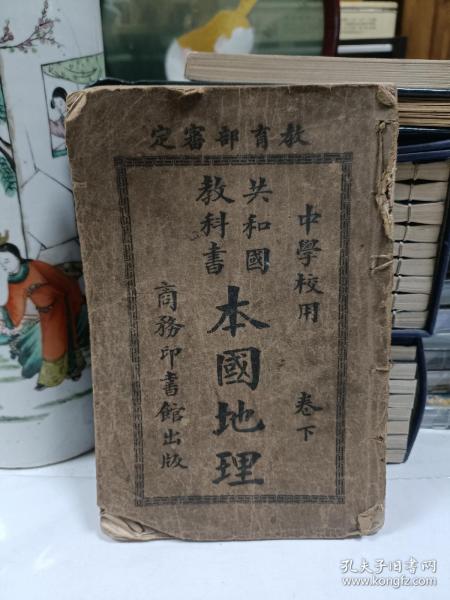 教育部審定
中學校用 卷下
共和國
教科書
本國地理
商務印書館出版
孔夫子旧书网
www.kongfz.com